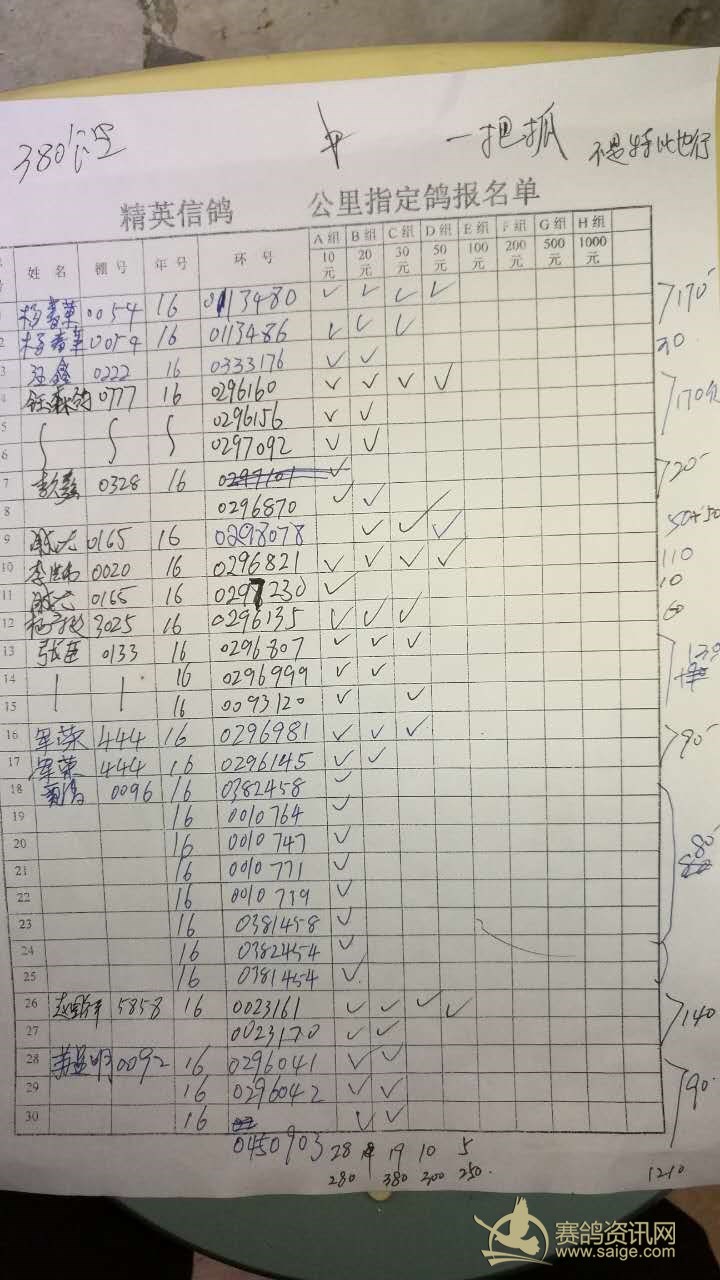 380公里 中 一把抓 不是特比也行
精英信鸽 公里指定鸽报名单
姓 名 棚 号 年 号 环 号 A 组 B 组 C 组 D 组 E 组 F 组 G 组 H 组
10元 20元 30元 50元 100元 200元 500元 1000元
0054 16 0113480 ✓ ✓ ✓ ✓ 170
2 0054 16 0113486 ✓ ✓ ✓
3 0222 16 0333176 ✓ ✓
4 0777 16 0296160 ✓ ✓ ✓ ✓ 170
5 0296156 ✓ ✓
6 0297092 ✓ ✓
7 0328 16 0297101 ✓ 20
8 0296870 ✓ ✓
9 0165 16 0298078 ✓ ✓ ✓ 50+50
10 0020 16 0296821 ✓ ✓ ✓ ✓ 110
11 0165 16 0297230 ✓ 10
12 3025 16 0296135 ✓ ✓ ✓ 60
13 0133 16 0296807 ✓ ✓ ✓
14 16 0296999 ✓ ✓
15 16 0093120 ✓ ✓
16 军荣 444 16 0296981 ✓ ✓ ✓ 90
17 军荣 444 16 0296145 ✓ ✓
18 0096 16 0382458 ✓
19 16 0010764 ✓
20 16 0010747 ✓
21 16 0010771 ✓ 80
22 16 0010719 ✓
23 16 0381458 ✓
24 16 0382454 ✓
25 16 0381454 ✓
26 5858 16 0023161 ✓ ✓ ✓ ✓ 140
27 0023170 ✓ ✓
28 0092 16 0296041 ✓ ✓
29 16 0296042 ✓ ✓ 90
30 16 ✓ ✓
0450903 28 19 10 5
280 380 300 250 1210
赛鸽资讯网
www.saige.com